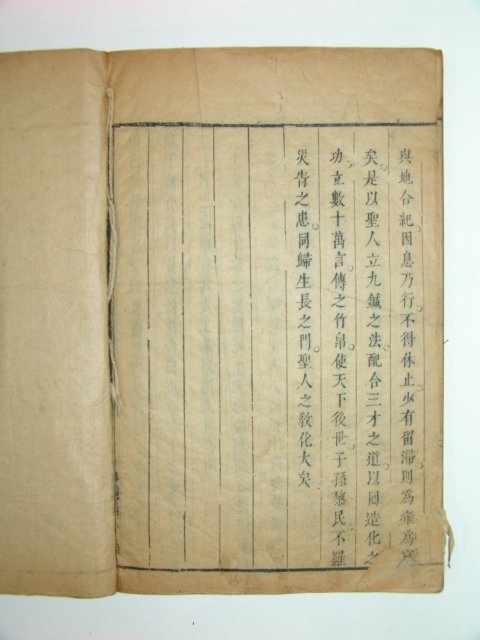 與地合紀因息乃行不得休止少有留滯則爲癰爲
矣是以聖人立九鍼之法配合三才之道以同造化之
功立數十萬言傳之竹帛使天下後世子孫黎民不罹
災眚之患同歸生長之門聖人之敎化大矣